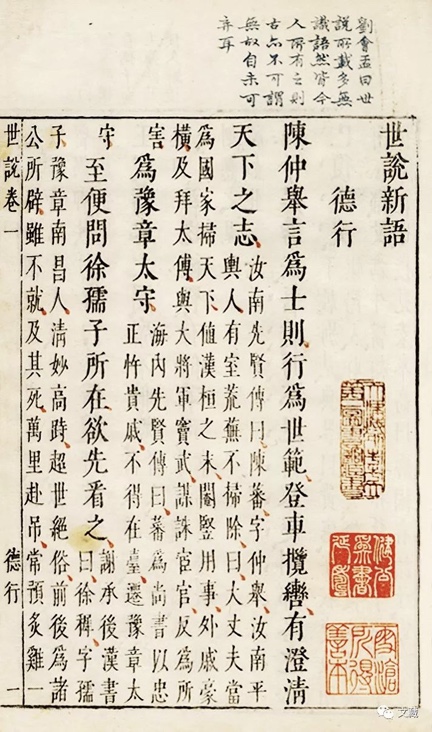 劉會孟曰世
說所載多無
識語然皆今
人所有之則
古亦不可謂
無故自未可
弃耳
世說新語
德行
陳仲舉言爲士則行爲世範登車攬轡有澄清
天下之志
汝南先賢傳曰陳蕃字仲舉汝南平
輿人有室荒蕪不掃除曰大丈夫當
爲國家掃天下値漢桓之末閹豎用事外戚豪
橫及拜太傅與大將軍竇武謀誅宦官反爲所
害
爲豫章太守
海內先賢傳曰蕃爲尚書以忠
正忤貴戚不得在臺遷豫章太
守
至便問徐孺子所在欲先看之
謝承後漢書
曰徐穉字孺
子豫章南昌人清妙高跱超世絕俗前後爲諸
公所辟雖不就及其死萬里赴吊常預炙雞一
世說卷一
德行
一